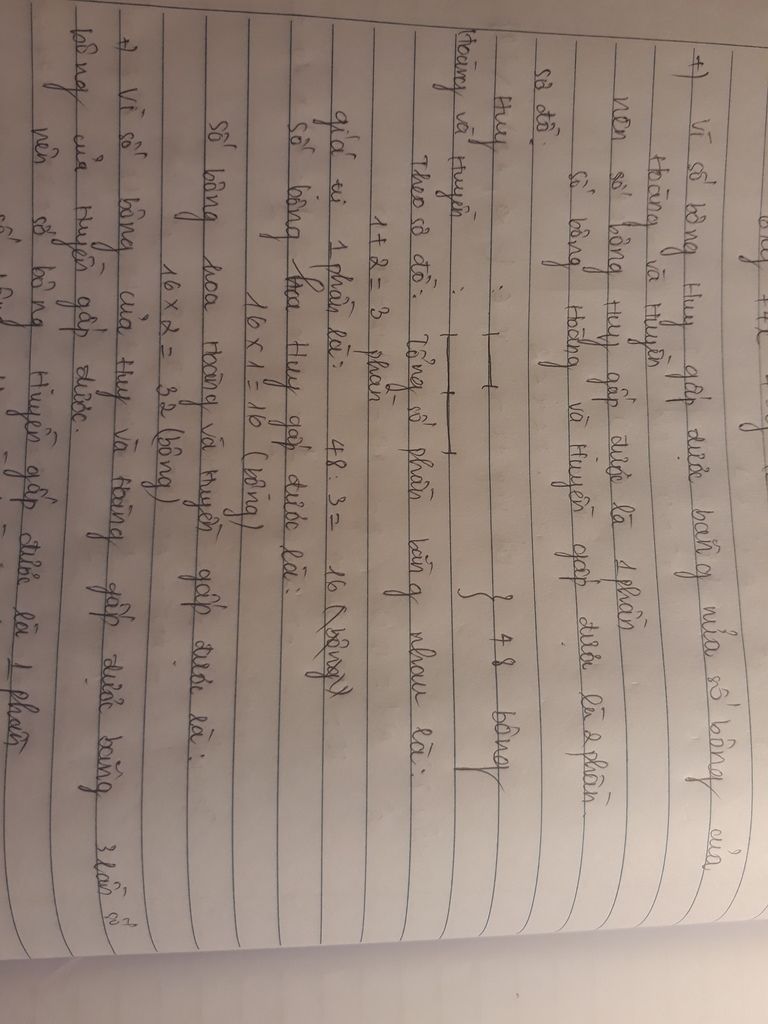 +) Vì số bông Huy gấp được bằng nửa số bông của
Hoàng và Huyền
nên số bông Huy gấp được là 1 phần
số bông Hoàng và Huyền gấp được là 2 phần
sơ đồ:
Huy :
Hoàng và Huyền : } 48 bông
Theo sơ đồ: Tổng số phần bằng nhau là:
1+2 = 3 phần
giá trị 1 phần là: 48 : 3 = 16 (bông)
số bông hoa Huy gấp được là:
16 x 1 = 16 (bông)
số bông hoa Hoàng và Huyền gấp được là:
16 x 2 = 32 (bông)
+) Vì số bông của Huy và Hoàng gấp được bằng 3 lần số
bông của Huyền gấp được.
nên số bông Huyền gấp được là 1 phần
số bông